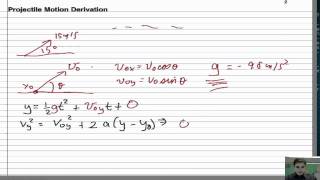 Projectile Motion Derivation
15m/s
15°
v₀
v₀ₓ = v₀cosθ
g = -9.8 m/s²
v₀ θ
v₀y = v₀ sinθ
y = ½gt² + v₀y t + 0
vy² = v₀y² + 2a(y - y₀) ⇒ 0